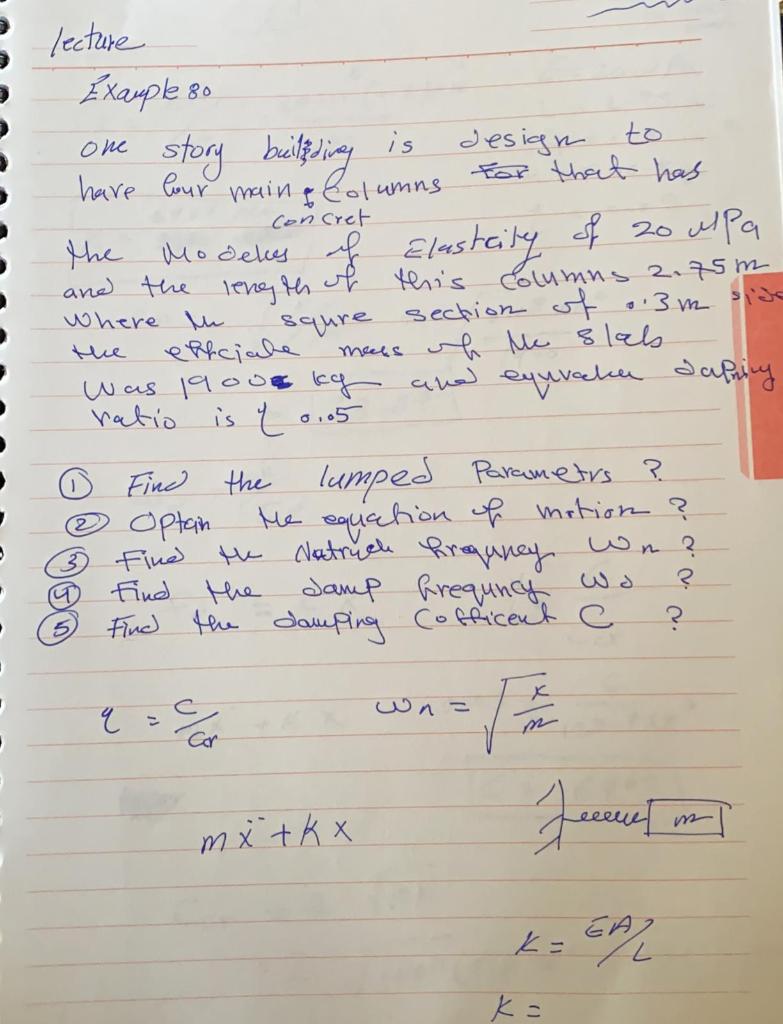 lecture
Example 80
one story building is design to
have four main columns for that has
concret
the Modelus of Elasticity of 20 MPa
and the length of this columns 2.75 m
where the squre section of 0.3 m side
the efficiate mass of the slab
was 1900 kg and equvalen dafning
ratio is ζ 0.05
① Find the lumped Parametrs ?
② Optain the equation of motion ?
③ Find the Natrueh frequncy ωn ?
④ Find the damp frequncy ωd ?
⑤ Find the damping Cofficent C ?
ζ = C/Ccr ωn = √k/m
mẍ + kx m
K = EA/L
K =